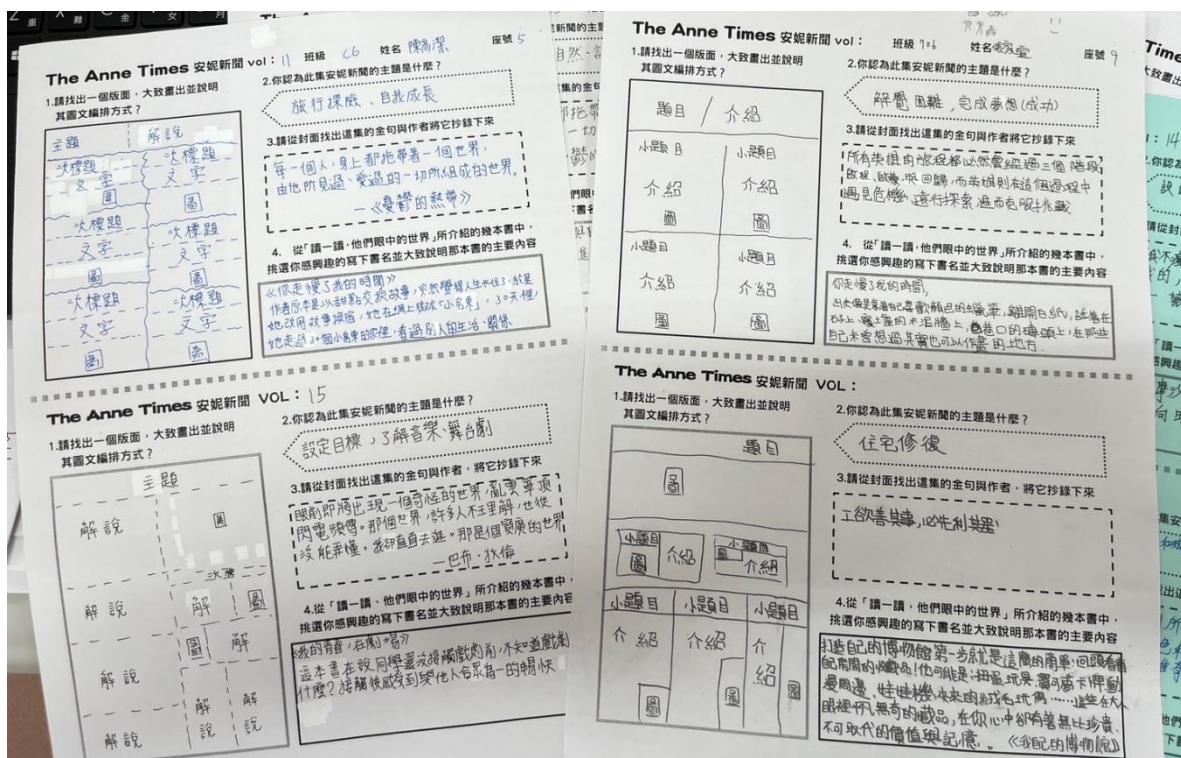 The Anne Times 安妮新聞 vol：11 班級 C6 姓名 座號 5
1.請找出一個版面，大致畫出並說明
其圖文編排方式？
主題 解說
次標題 次標題
文字 文字
圖 圖
次標題 次標題
文字 文字
圖 圖
次標題 次標題
文字 文字
圖 圖
2.你認為此集安妮新聞的主題是什麼？
旅行探險、自我成長
3.請從封面找出這集的金句與作者將它抄錄下來
每一個人，身上都拖帶著一個世界，
由他所見過、愛過的一切所組成的世界。
—《憂鬱的熱帶》
4. 從「讀一讀，他們眼中的世界」所介紹的幾本書中，
挑選你感興趣的寫下書名並大致說明那本書的主要內容
《你走慢了我的時間》
作者原本是以甜點交換故事，突然覺得人生卡住了，於是
她改用故事換宿，她在網上徵求「小房東」，30天裡，
她走過30個小房東的家裡，看過別人的生活、關係
The Anne Times 安妮新聞 VOL：15
1.請找出一個版面，大致畫出並說明
其圖文編排方式？
主題
解說 圖
次標
解說 解 圖
圖 解
解說 解
解說 說 說
2.你認為此集安妮新聞的主題是什麼？
設定目標，了解音樂、舞台劇
3.請從封面找出這集的金句與作者，將它抄錄下來
眼前即將出現一個奇怪的世界，亂雲罩頂
閃電頻傳。那個世界，許多人不理解，也從
沒能弄懂。我卻直直去進。那是個寬廣的世界
—巴布·狄倫
4.從「讀一讀，他們眼中的世界」所介紹的幾本書中，
挑選你感興趣的寫下書名並大致說明那本書的主要內容
《我的青春，在劇場》
這本書在說同學首次接觸戲劇前，不知道戲劇
什麼？接觸後感受到與他人合眾為一的暢快
The Anne Times 安妮新聞 vol： 班級 706 姓名 座號 9
1.請找出一個版面，大致畫出並說明
其圖文編排方式？
題目 / 介紹
小題目 小題目
介紹 介紹
圖 圖
小題目 小題目
介紹 介紹
圖 圖
2.你認為此集安妮新聞的主題是什麼？
解覺困難，完成夢想(成功)
3.請從封面找出這集的金句與作者將它抄錄下來
所有英雄的旅程都必然會經過三個階段
啟程、啟蒙，與回歸，而英雄則在這個過程中
遇見危機，進行探索，進而克服挑戰
4. 從「讀一讀，他們眼中的世界」所介紹的幾本書中，
挑選你感興趣的寫下書名並大致說明那本書的主要內容
你走慢了我的時間，
自己未曾想過其實也可以作畫的地方．
The Anne Times 安妮新聞 VOL：
1.請找出一個版面，大致畫出並說明
其圖文編排方式？
題目
圖
小題目 小題目
圖 介紹 圖 介紹
小題目 小題目 小題目
介紹 介紹 介紹
圖 圖 圖
2.你認為此集安妮新聞的主題是什麼？
住宅修復
3.請從封面找出這集的金句與作者，將它抄錄下來
工欲善其事，必先利其器
4.從「讀一讀，他們眼中的世界」所介紹的幾本書中，
挑選你感興趣的寫下書名並大致說明那本書的主要內容
打造自己的博物館第一步就是這麼的簡單:回頭看看
自己房間的收藏品!他可能是：扭蛋玩具、寶可夢卡牌動
漫周邊、娃娃機夾來的絨毛玩偶……這些在大人
眼裡平凡無奇的藏品，在你心中卻有著無比珍貴、
不可取代的價值與記憶。《我自己的博物館》